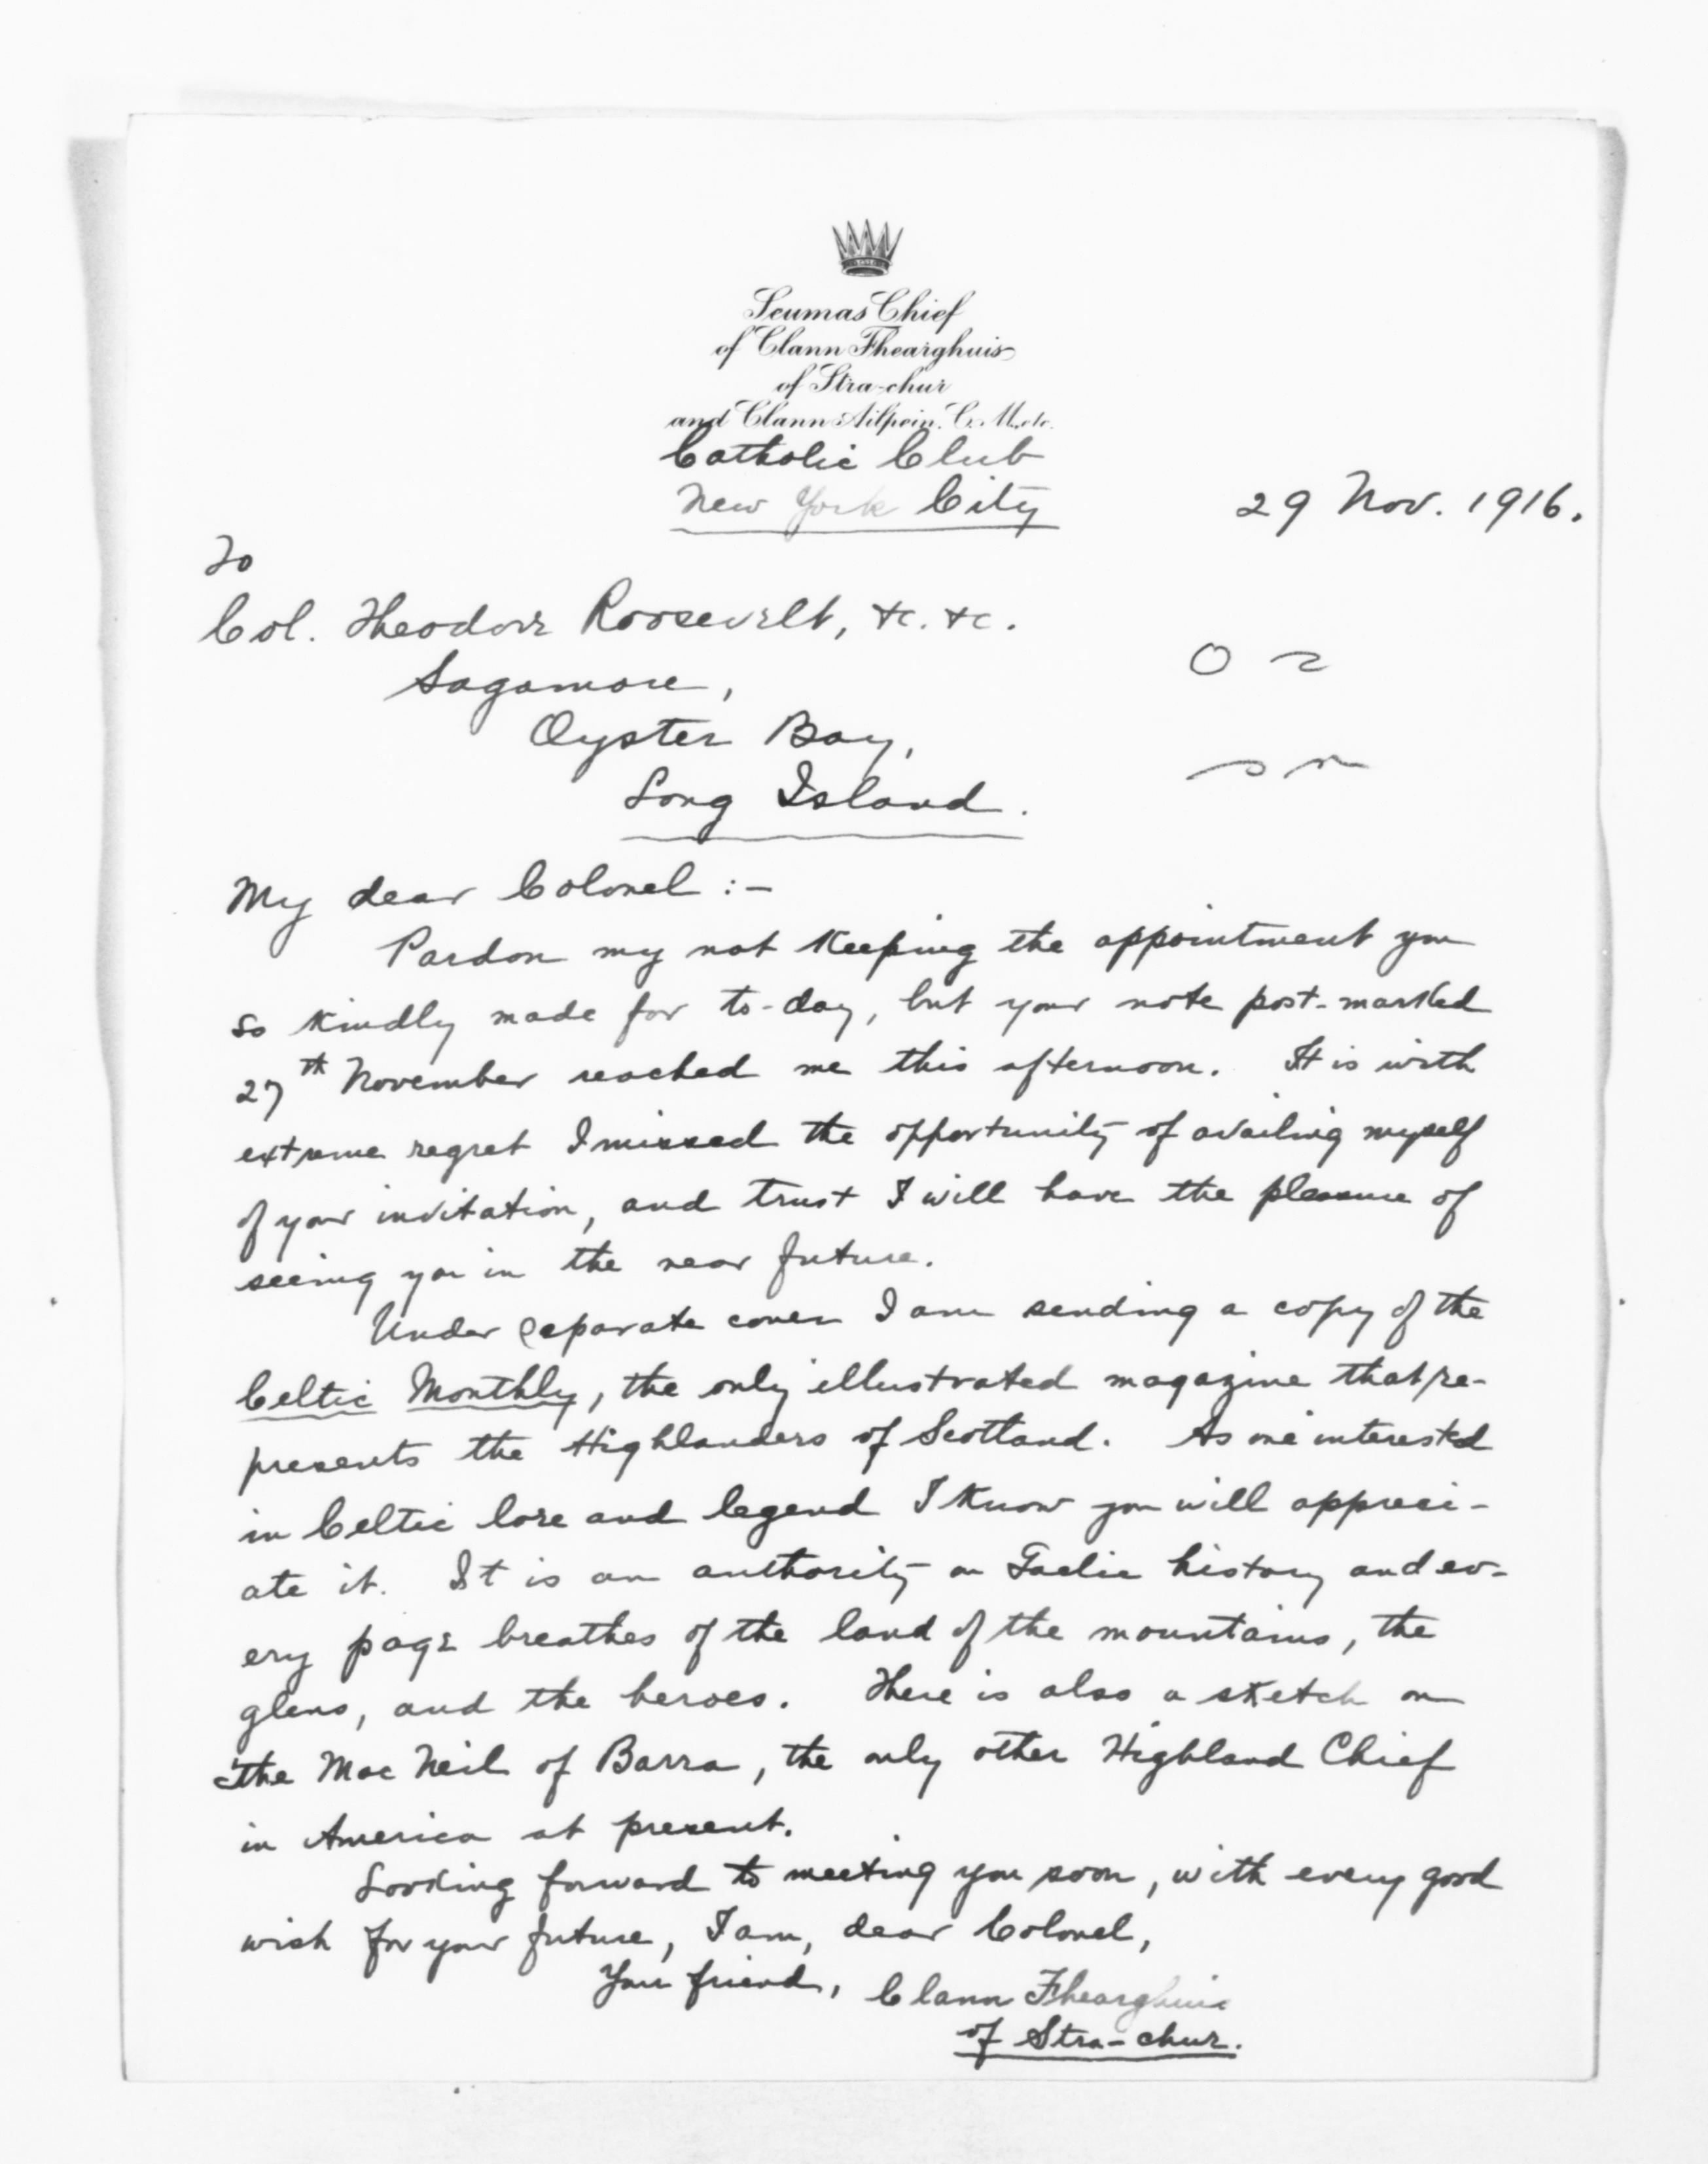 Seumas Chief
of Clann Fhearghuis
of Stra-chur
and Clann Ailpein. C. M. etc.
Catholic Club
New York City
29 Nov. 1916.
To
Col. Theodore Roosevelt, &c. &c.
Sagamore,
Oyster Bay,
Long Island.
My dear Colonel :-
Pardon my not keeping the appointment you
so kindly made for to-day, but your note post-marked
27th November reached me this afternoon. It is with
extreme regret I missed the opportunity of availing myself
of your invitation, and trust I will have the pleasure of
seeing you in the near future.
Under separate cover I am sending a copy of the
Celtic Monthly, the only illustrated magazine that re-
presents the Highlanders of Scotland. As one interested
in Celtic lore and legend I know you will appreci-
ate it. It is an authority on Gaelic history and ev-
ery page breathes of the land of the mountains, the
glens, and the heroes. There is also a sketch on
the MacNeil of Barra, the only other Highland Chief
in America at present.
Looking forward to meeting you soon, with every good
wish for your future, I am, dear Colonel,
Your friend, Clann Fhearghuis
of Stra-chur.